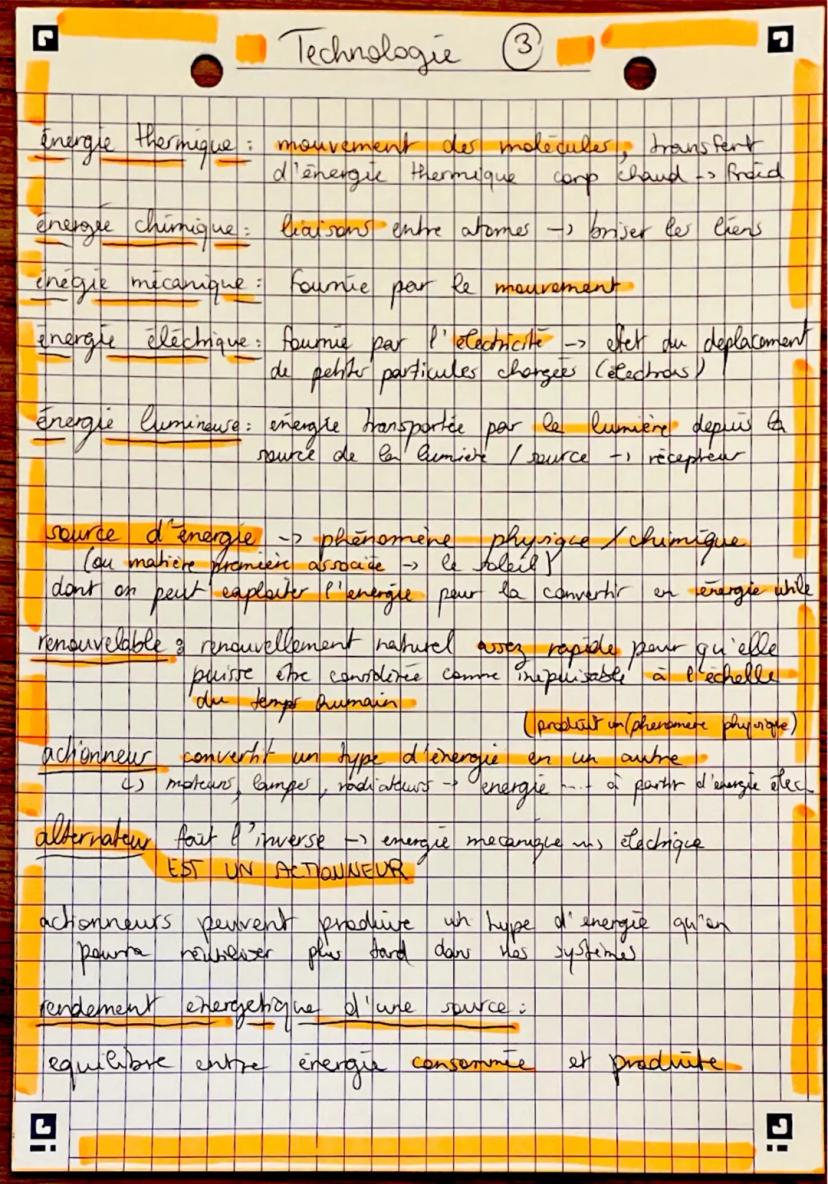 Technologie 3
énergie thermique : mouvement des molécules, transfert
d'énergie thermique corp chaud -> froid
énergie chimique : liaisons entre atomes -> briser les liens
énégie mécanique : fournie par le mouvement
énergie éléctrique : fournie par l'électricité -> efet du deplacement
de petites particules chargées (électrons)
énergie lumineuse : énergie transportée par la lumière depuis la
source de la lumière / source -> récepteur
source d'énergie -> phénomène physique / chimique
(ou matière première associée -> le soleil)
dont on peut exploiter l'énergie pour la convertir en énergie utile
renouvelable : renouvellement naturel assez rapide pour qu'elle
puisse être considérée comme inépuisable à l'échelle
du temps humain
(produit un phénomère physique)
actionneur convertit un type d'énergie en un autre
↳ moteurs, lampes, radiateurs -> énergie ... à partir d'énergie élec
alternateur fait l'inverse -> énergie mécanique ~> électrique
EST UN ACTIONNEUR
actionneurs peuvent produire un type d'énergie qu'on
pourra réutiliser plus tard dans nos systèmes
rendement énergétique d'une source :
equilibre entre énergie consommée et produite